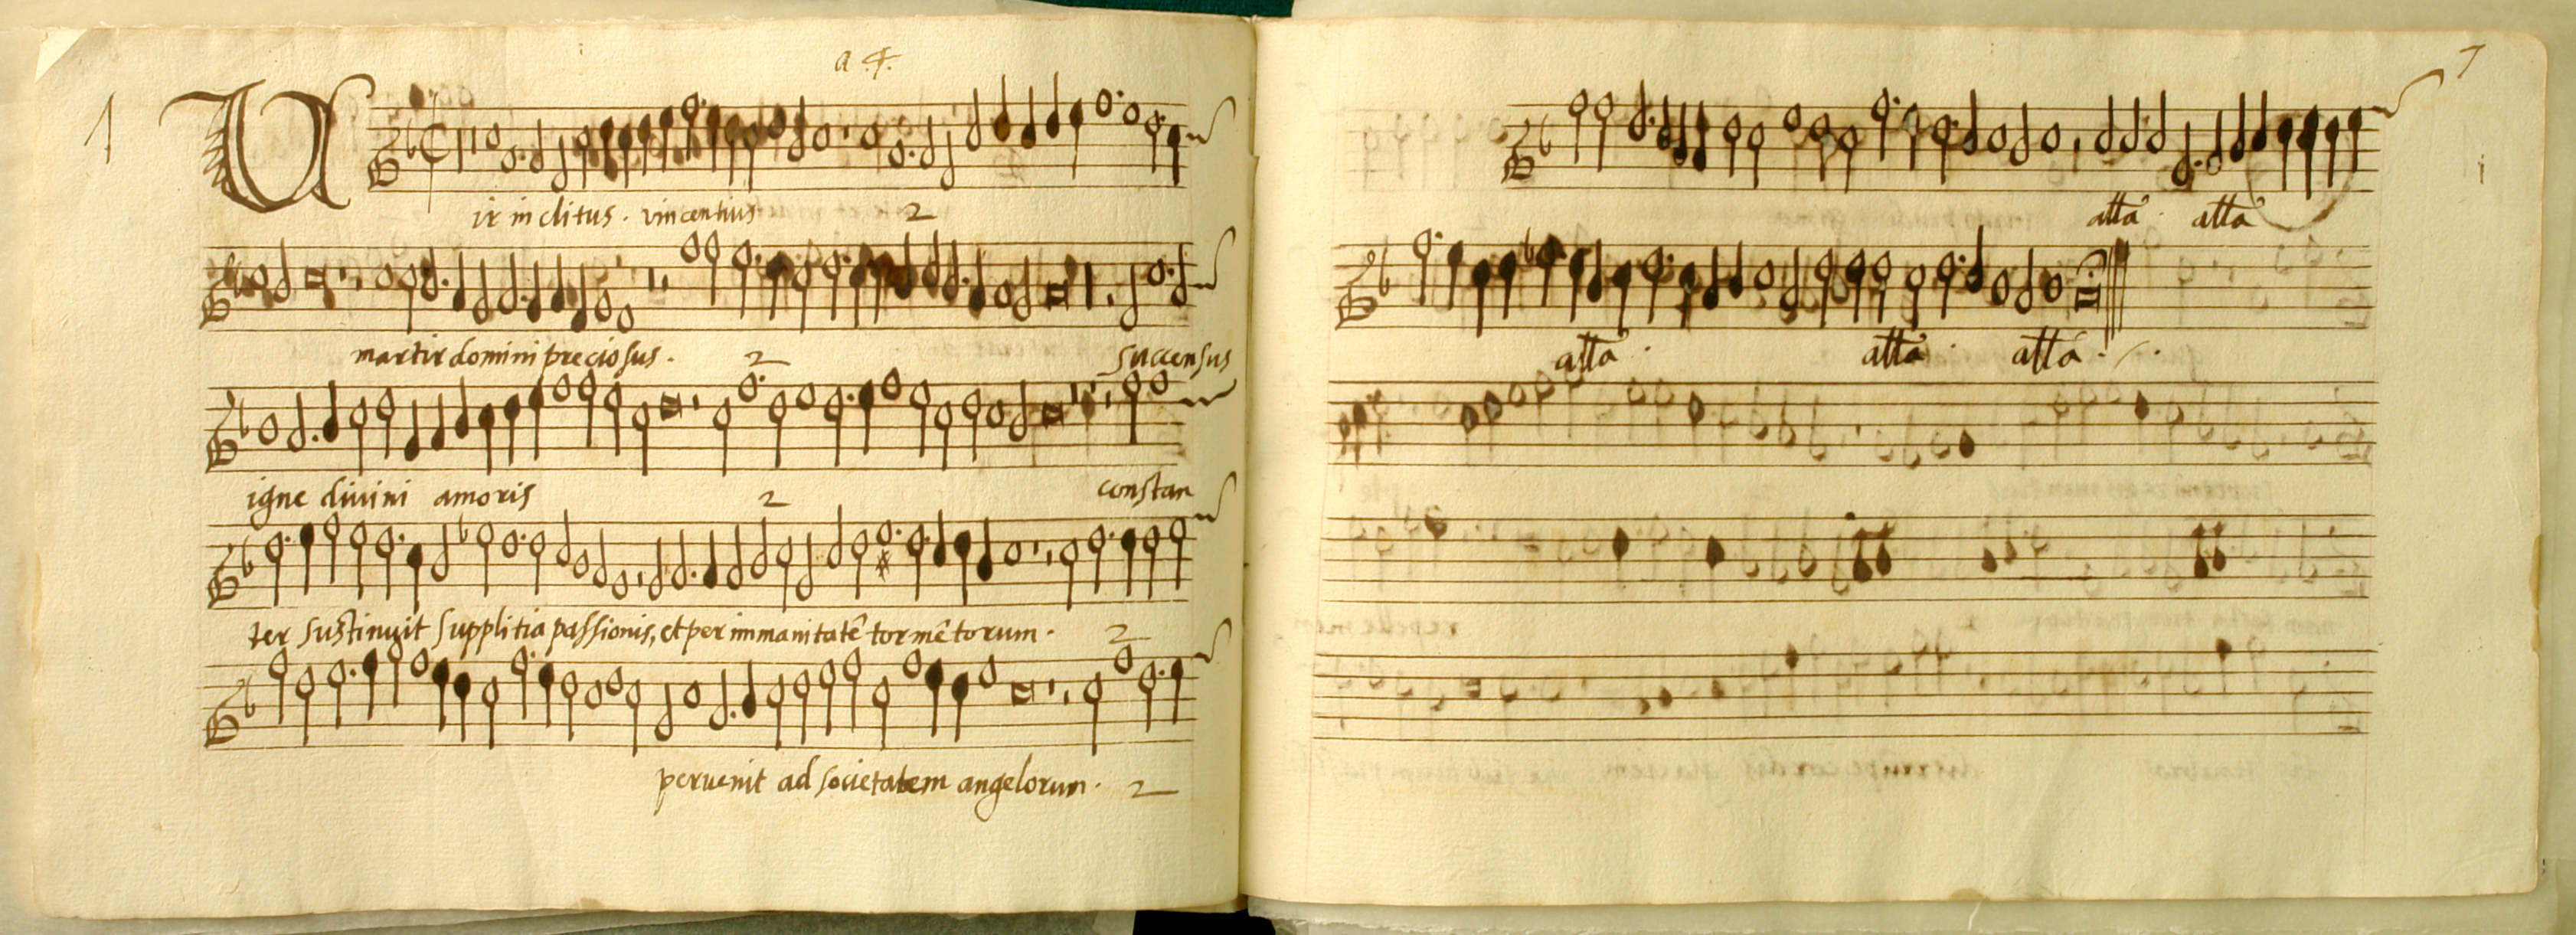 a 4.
1
Vir inclitus . vincentius 2
martir domini preciosus . 2 succensus
igne divini amoris 2 constan
ter sustinuit supplitia passionis, et per immanitatē tormētorum . 2
pervenit ad societatem angelorum . 2
7
alła . alła
alła . alła . alła .